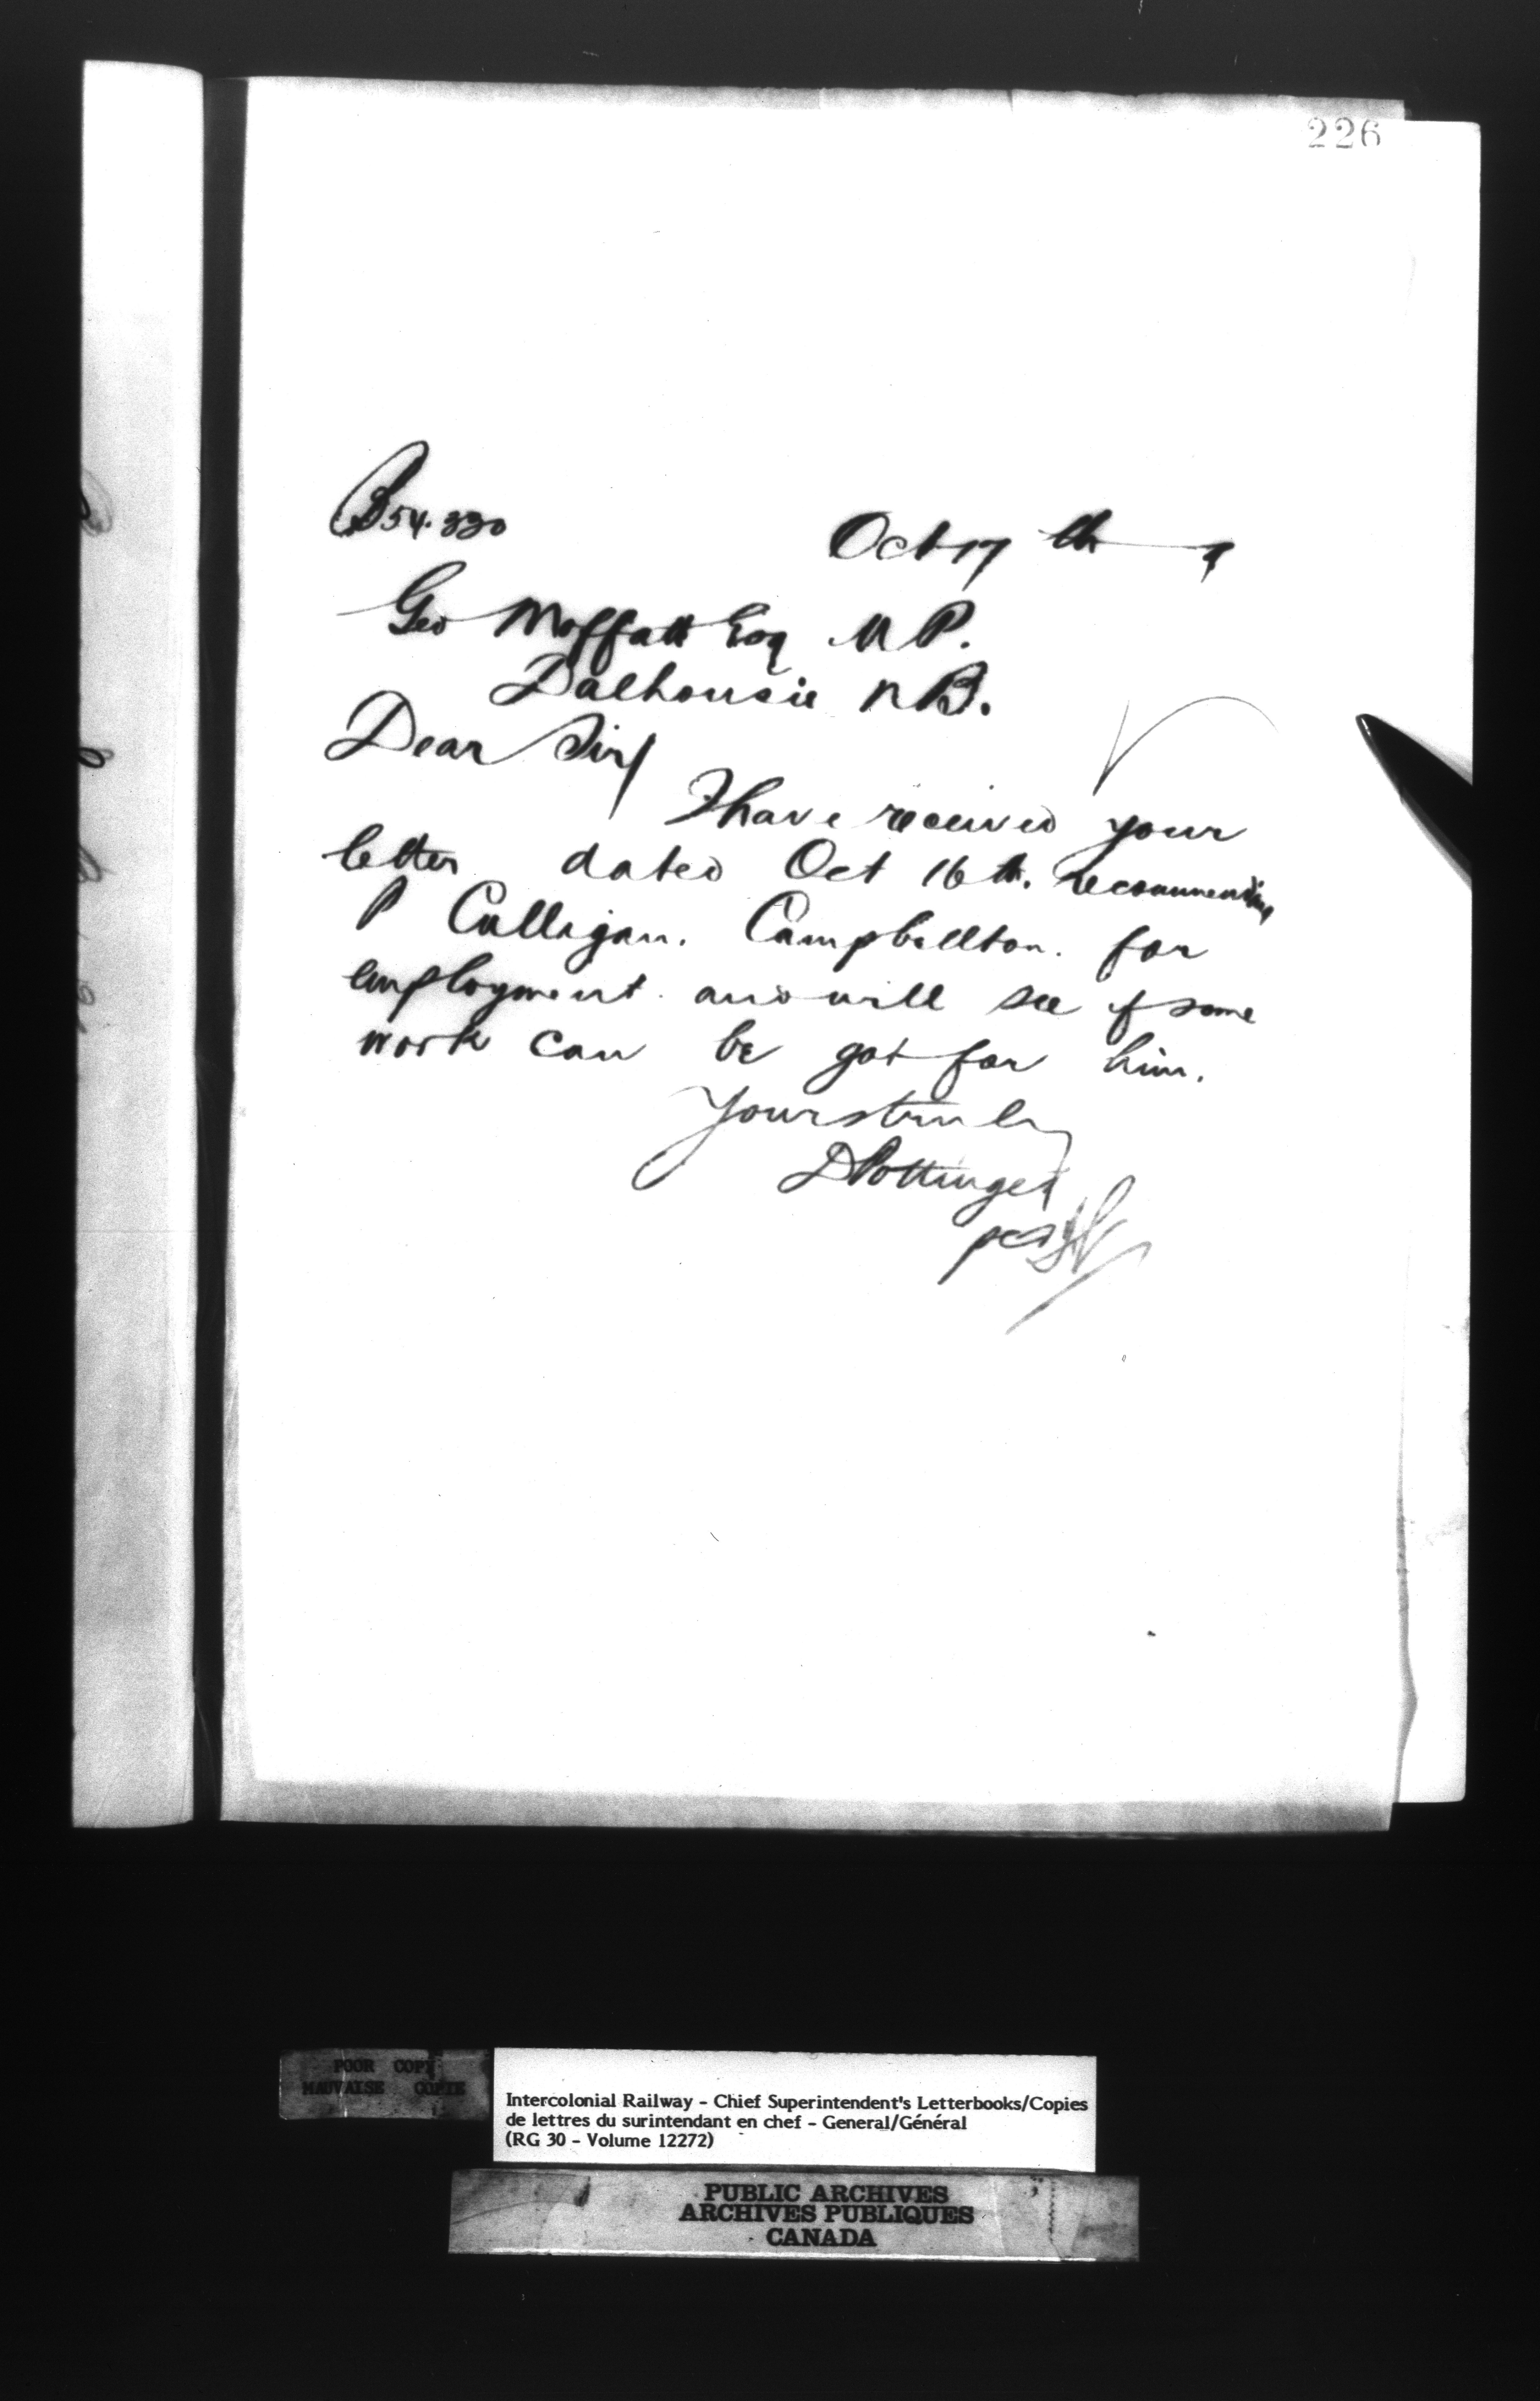 226
B 54.330
Oct 17th 9
Geo Moffatt Esq M P.
Dalhousie N B.
Dear Sir/
I have received your
letter dated Oct 16th. recommending
P Culligan. Campbellton. for
employment. and will see if some
work can be got for him.
Yours truly
D Pottinger
per
POOR COPY
MAUVAISE COPIE
Intercolonial Railway - Chief Superintendent's Letterbooks/Copies
de lettres du surintendant en chef - General/Général
(RG 30 - Volume 12272)
PUBLIC ARCHIVES
ARCHIVES PUBLIQUES
CANADA